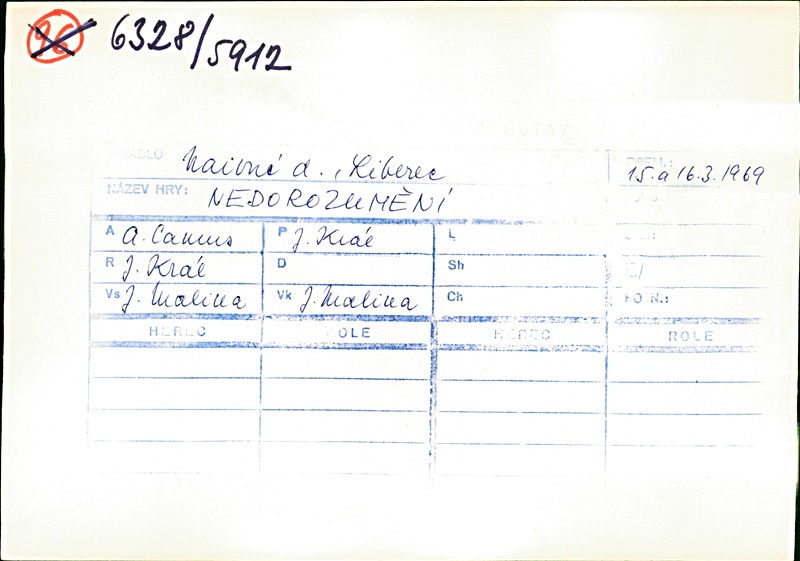 96 6328/5912
DIVADLO Naivní d., Liberec PREM.: 15. a 16.3.1969
NÁZEV HRY: NEDOROZUMĚNÍ
A A. Camus P J. Král L
R J. Král D Sh
Vs J. Malina Vk J. Malina Ch FO N.:
HEREC ROLE HEREC ROLE